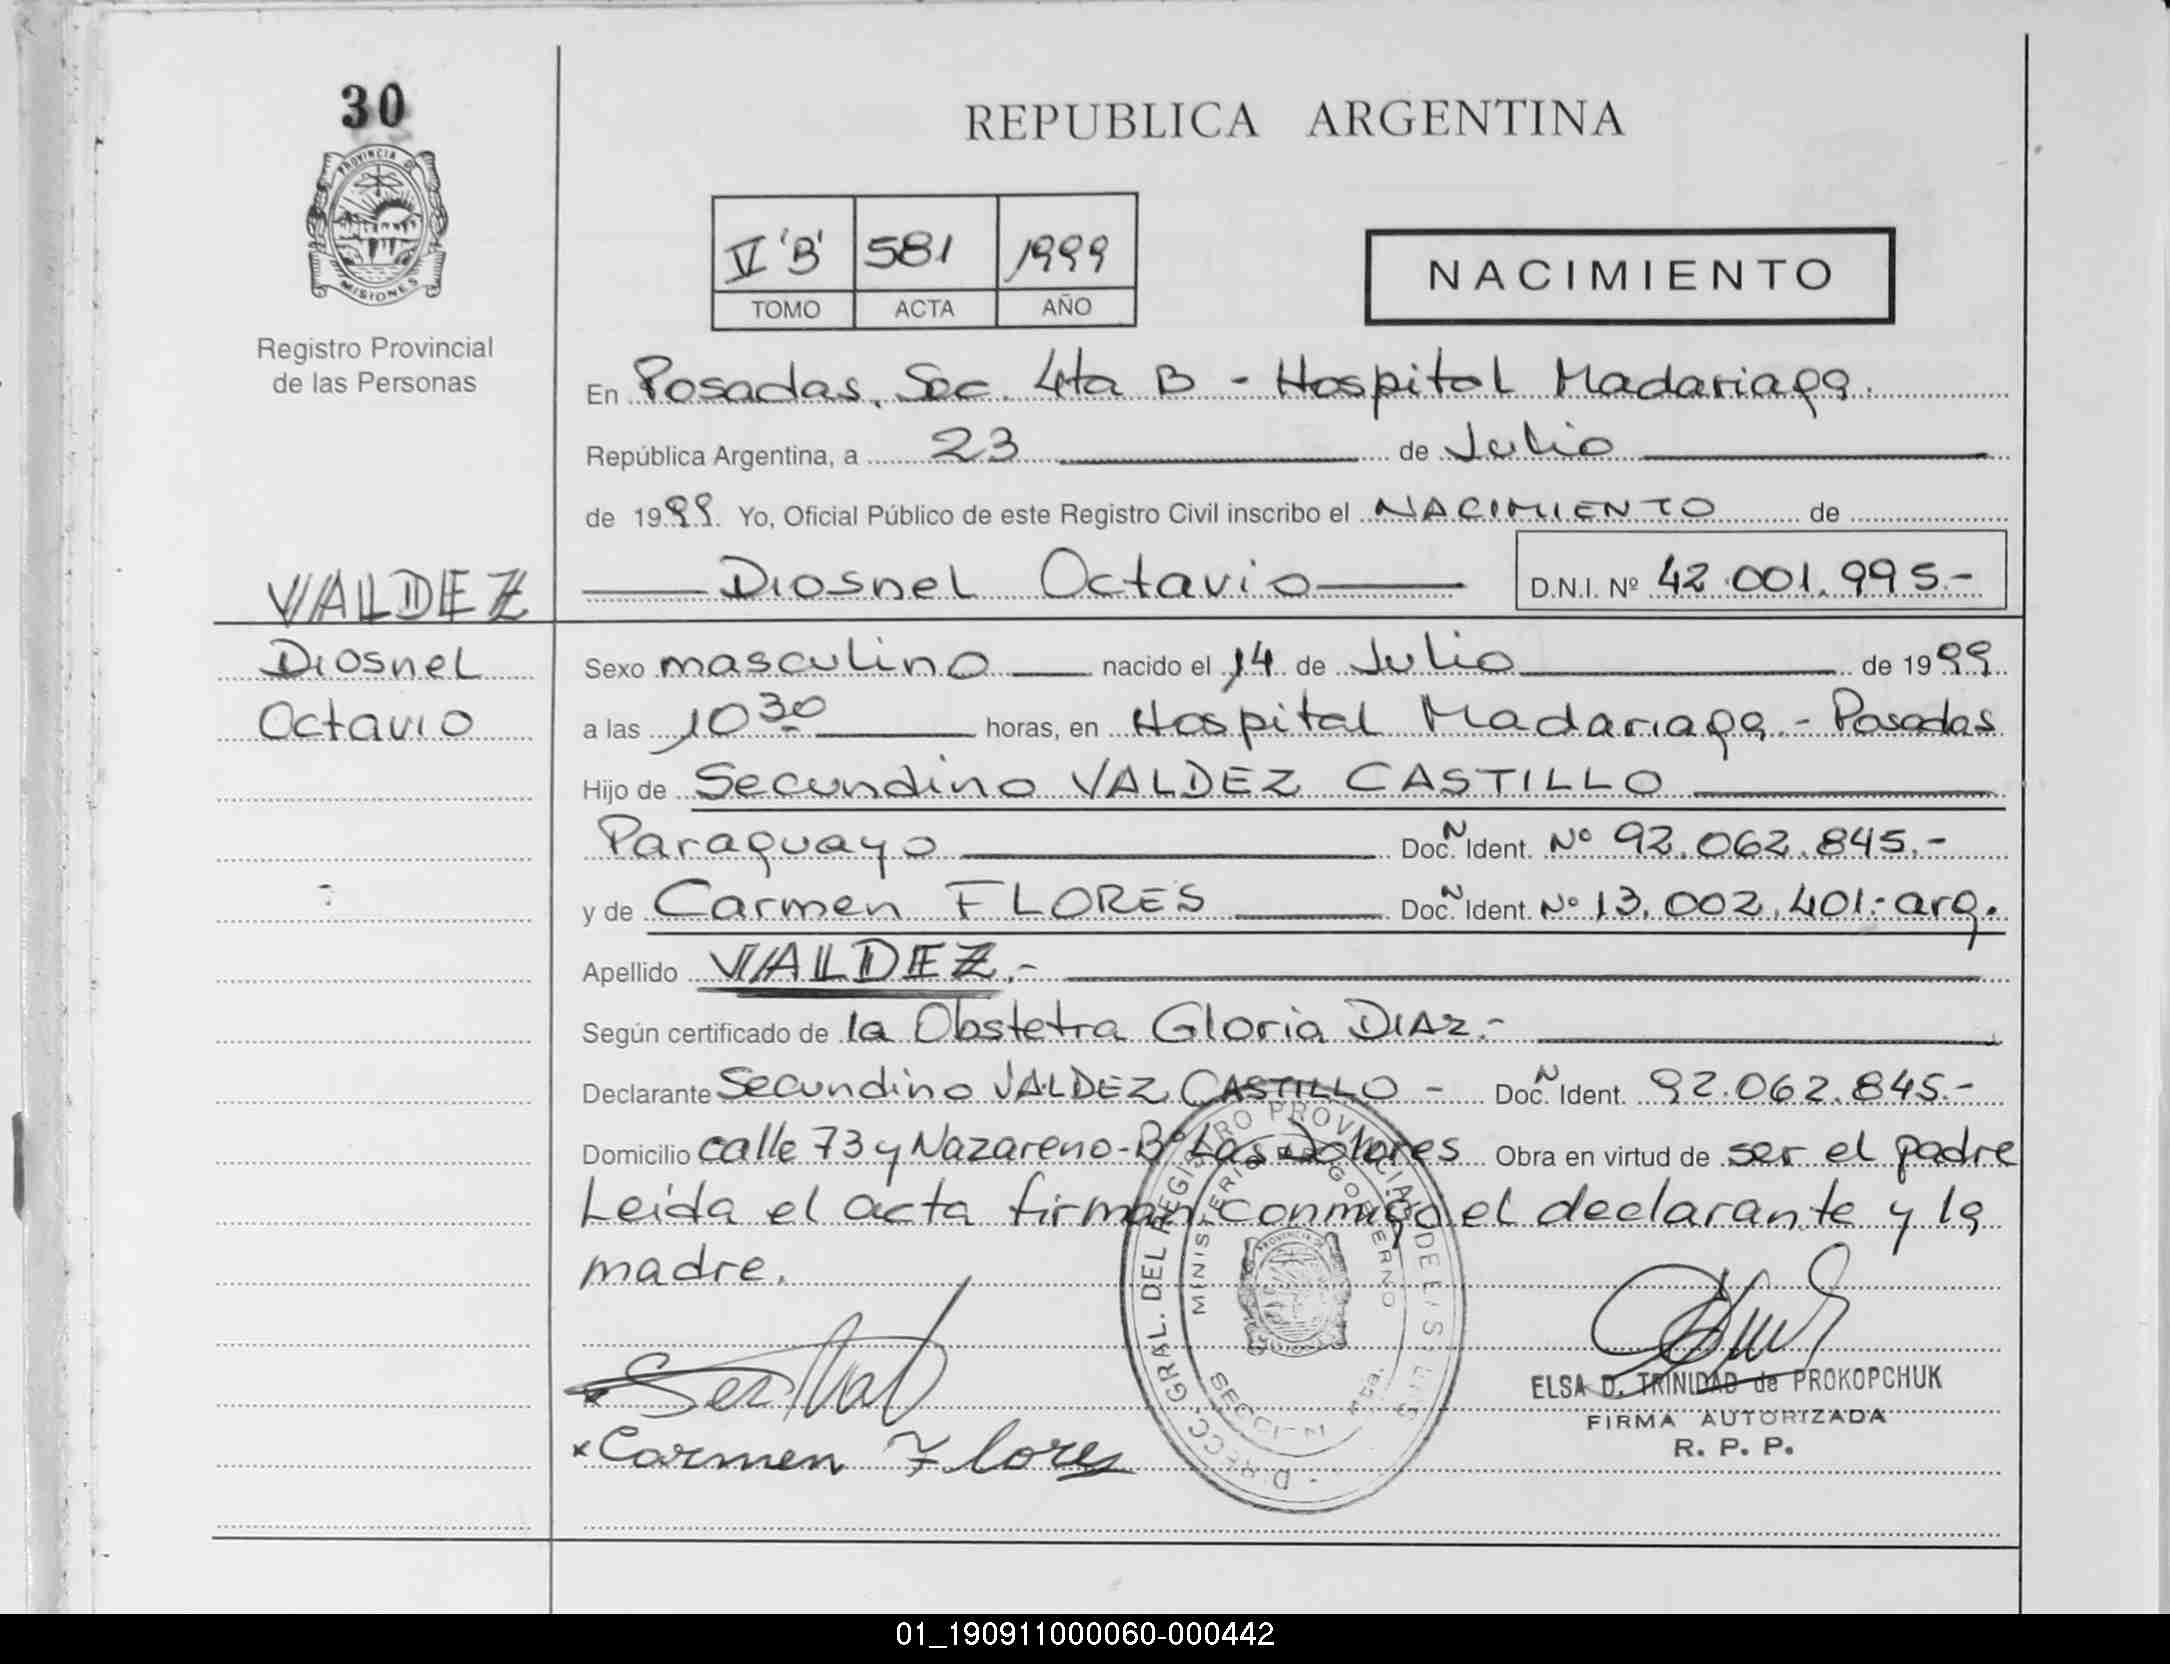 30
PROVINCIA DE
MISIONES
Registro Provincial
de las Personas
REPUBLICA ARGENTINA
VI 'B' 581 1999
TOMO ACTA AÑO
NACIMIENTO
En Posadas, Sec. 4ta B - Hospital Madariaga.
República Argentina, a 23 de Julio
de 1999. Yo, Oficial Público de este Registro Civil inscribo el NACIMIENTO de
Diosnel Octavio D.N.I. Nº 42.001.995.-
VALDEZ
Diosnel
Octavio
Sexo masculino nacido el 14 de Julio de 1999
a las 10 30 horas, en Hospital Madariaga - Posadas
Hijo de Secundino VALDEZ CASTILLO
Paraguayo Doc. N Ident. Nº 92.062.845.-
y de Carmen FLORES Doc. N Ident. Nº 13.002.401.- arg.
Apellido VALDEZ.-
Según certificado de la Obstetra Gloria DIAZ.-
Declarante Secundino VALDEZ CASTILLO - Doc. N Ident. 92.062.845.-
Domicilio calle 73 y Nazareno - Bº Las Dolores Obra en virtud de ser el padre
Leida el acta firman conmigo el declarante y la
madre.
DIRECC. GRAL. DEL REGISTRO PROVINCIAL DE LAS
MINISTERIO DE GOBERNO
SECCION 4ta.
ELSA D. TRINIDAD de PROKOPCHUK
FIRMA AUTORIZADA
R. P. P.
x Carmen Flores
01_190911000060-000442